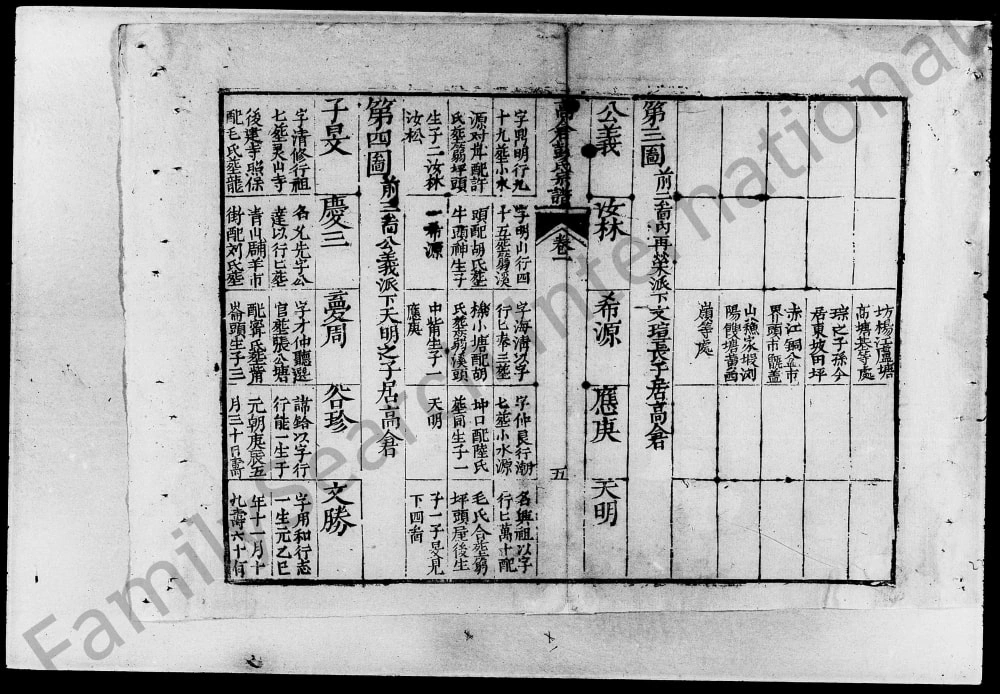 坊楊江盧塘
高塘巷等處
琮之子孫今
居東坡田坪
赤江銅盆市
界頭市
山 家塅浏
陽 塘黄西
嶺等處
第三圖 前二啚内再榮派下文瑄長子居高倉
公義
汝林
希源
應庚
天明
字 明行九
十九葬小水
源对 配許
氏葬 坪頭
生子二汝林
汝松
字明山行四
十五葬 溪
頭配胡氏葬
牛 神生子
一希源
字海清以字
行七泰三葬
 小塘配胡
氏葬 溪頭
中 生子一
應庚
字仲良行潮
七葬小水源
坤口配陸氏
葬同生子一
天明
名興祖以字
行七萬十配
毛氏合葬
坪頭屋後生
子一子旻見
下四啚
高倉彭氏宗譜
卷一
五
第四圖 前三啚公義派下天明之子居高倉
子旻
慶三
憂周
谷珍
文勝
字清修行祖
七葬灵山寺
後建寺照保
配毛氏葬龍
名允先字公
達以行七葬
青山 羊市
街配刘氏葬
字才仲聽選
官葬張公塘
配寗氏葬
崙頭生子三
諱鉻以字行
行能一生于
元朝庚辰五
月三十日壽
字用和行志
一生元乙巳
年十一月十
九壽六十有
FamilySearch International